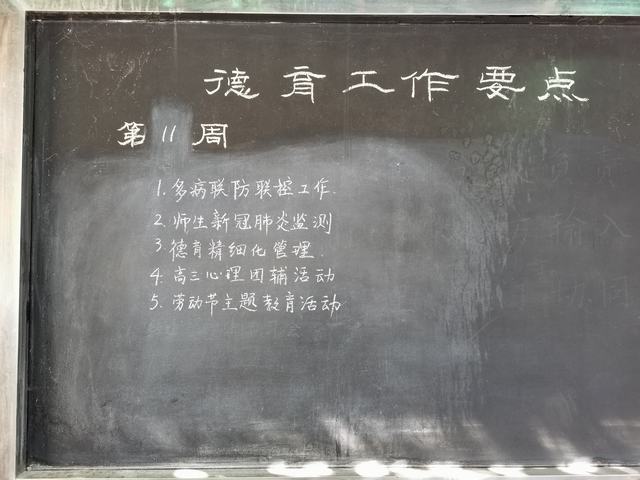 德育工作要点
第11周
1. 多病联防联控工作.
2. 师生新冠肺炎监测
3. 德育精细化管理.
4. 高三心理团辅活动
5. 劳动节主题教育活动